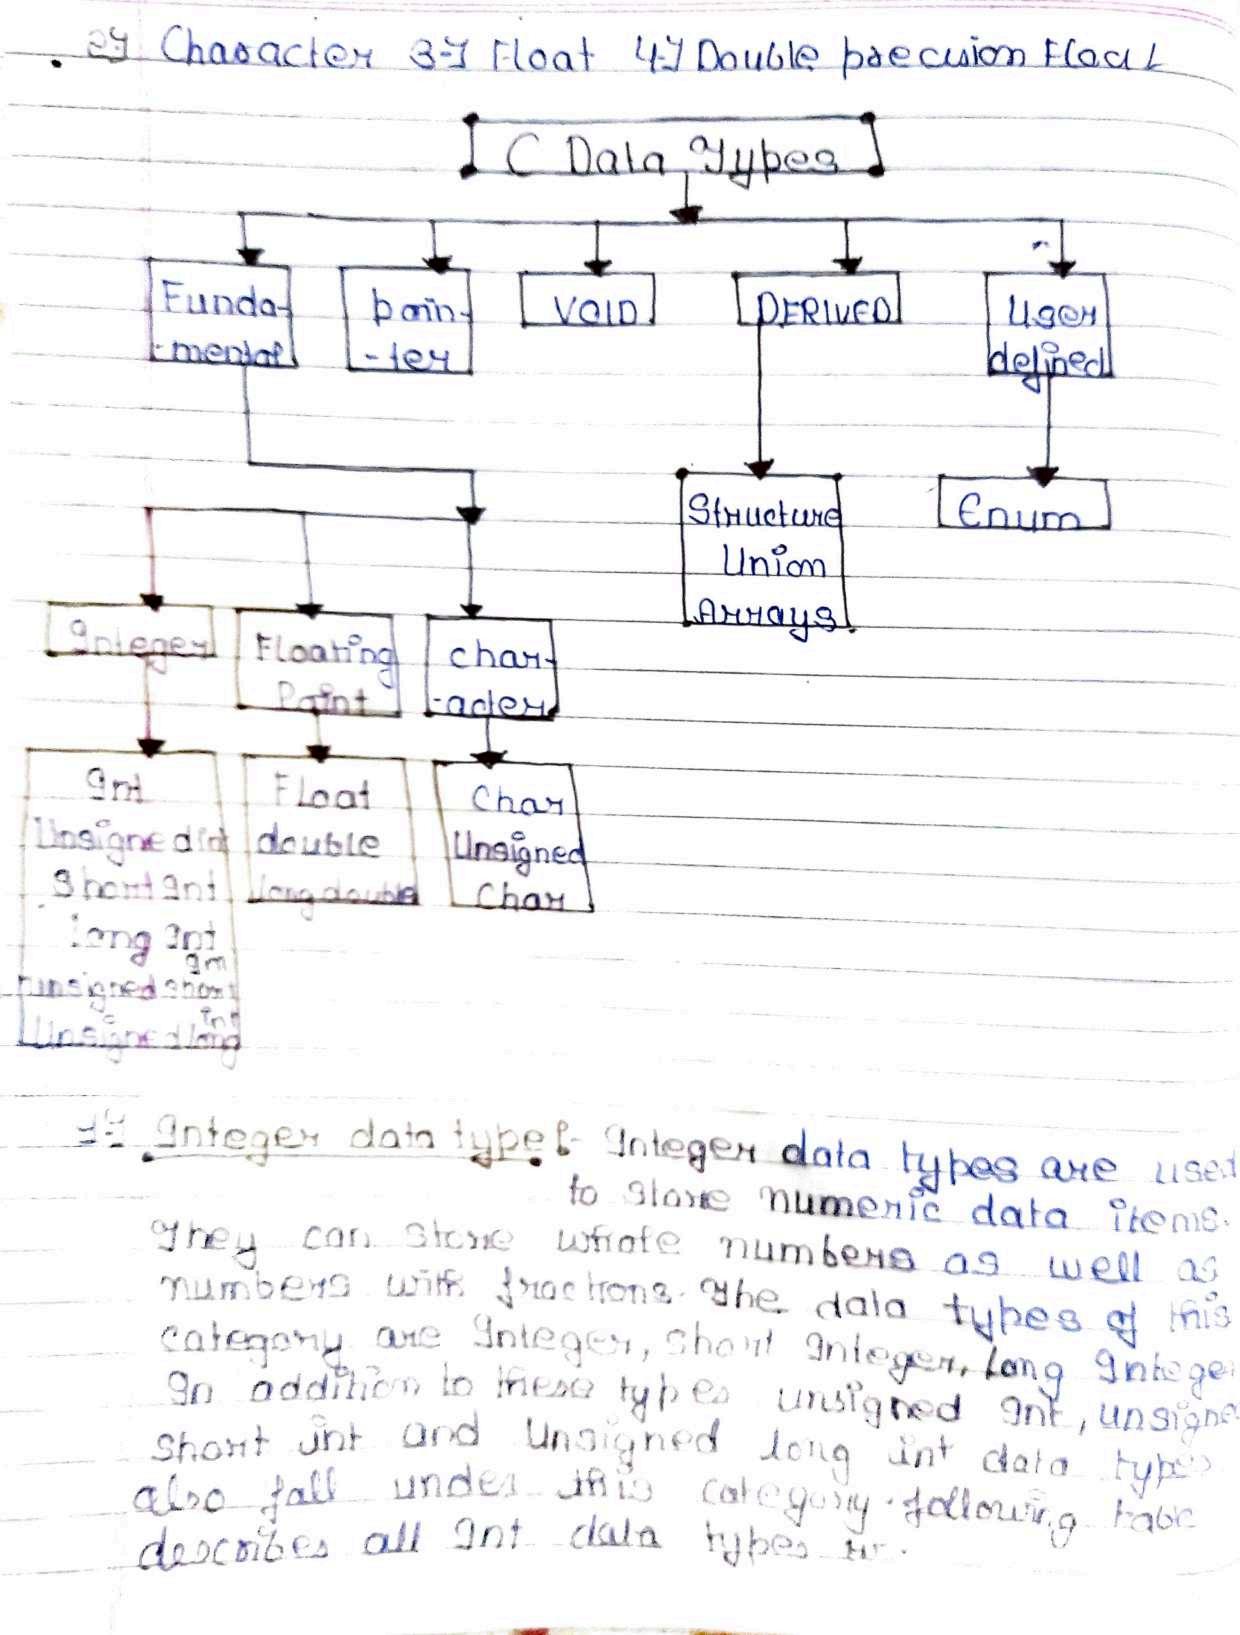 2-] Character 3-] Float 4-] Double precision Float
C Data Types
Funda-
-mental
poin-
-ter
VOID
DERIVED
User
defined
Structure
Union
Arrays.
Enum
Integer
Floating
Point
char-
-acter
Int
Unsigned int
Short Int
long Int
unsigned short
int
Unsigned long
Float
double
long double
Char
Unsigned
Char
1-] Integer data type:- Integer data types are used
to store numeric data items.
They can store whole numbers as well as
numbers with fractions. The data types of this
category are Integer, Short Integer, Long Intege
In addition to these types unsigned Int, unsigne
Short int and Unsigned long int data types
also fall under this category. following table
describes all Int data types